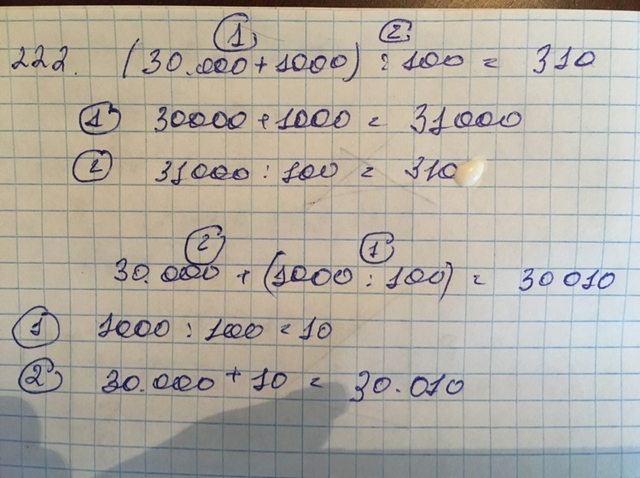 ① ②
222. (30.000 + 1000) : 100 = 310
① 30000 + 1000 = 31000
② 31000 : 100 = 310
② ①
30.000 + (1000 : 100) = 30 010
① 1000 : 100 = 10
② 30.000 + 10 = 30.010